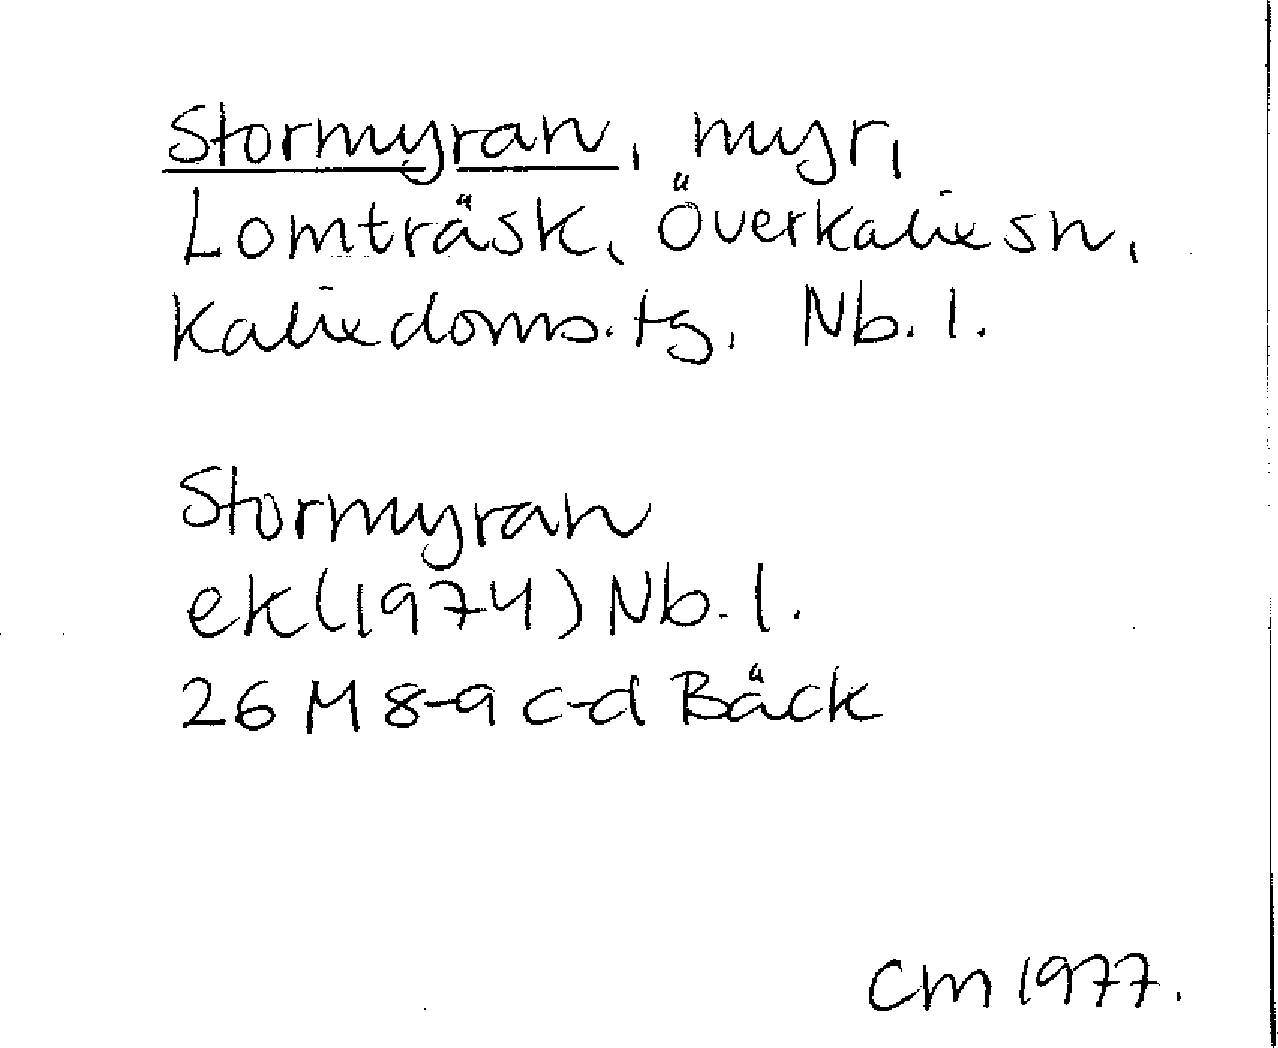 Stormyran, myr,
Lomträsk, Överkalix sn,
Kalix doms. tg, Nb. l.
Stormyran
ek (1974) Nb. l.
26 M 8-9 c-d Bäck
CM 1977.